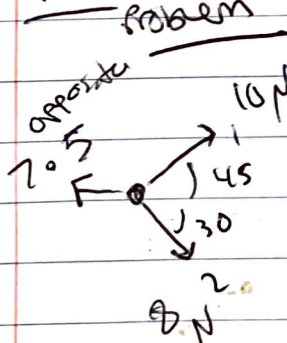 Problem
opposite
10 N
1
7.5
45
30
2
8 N